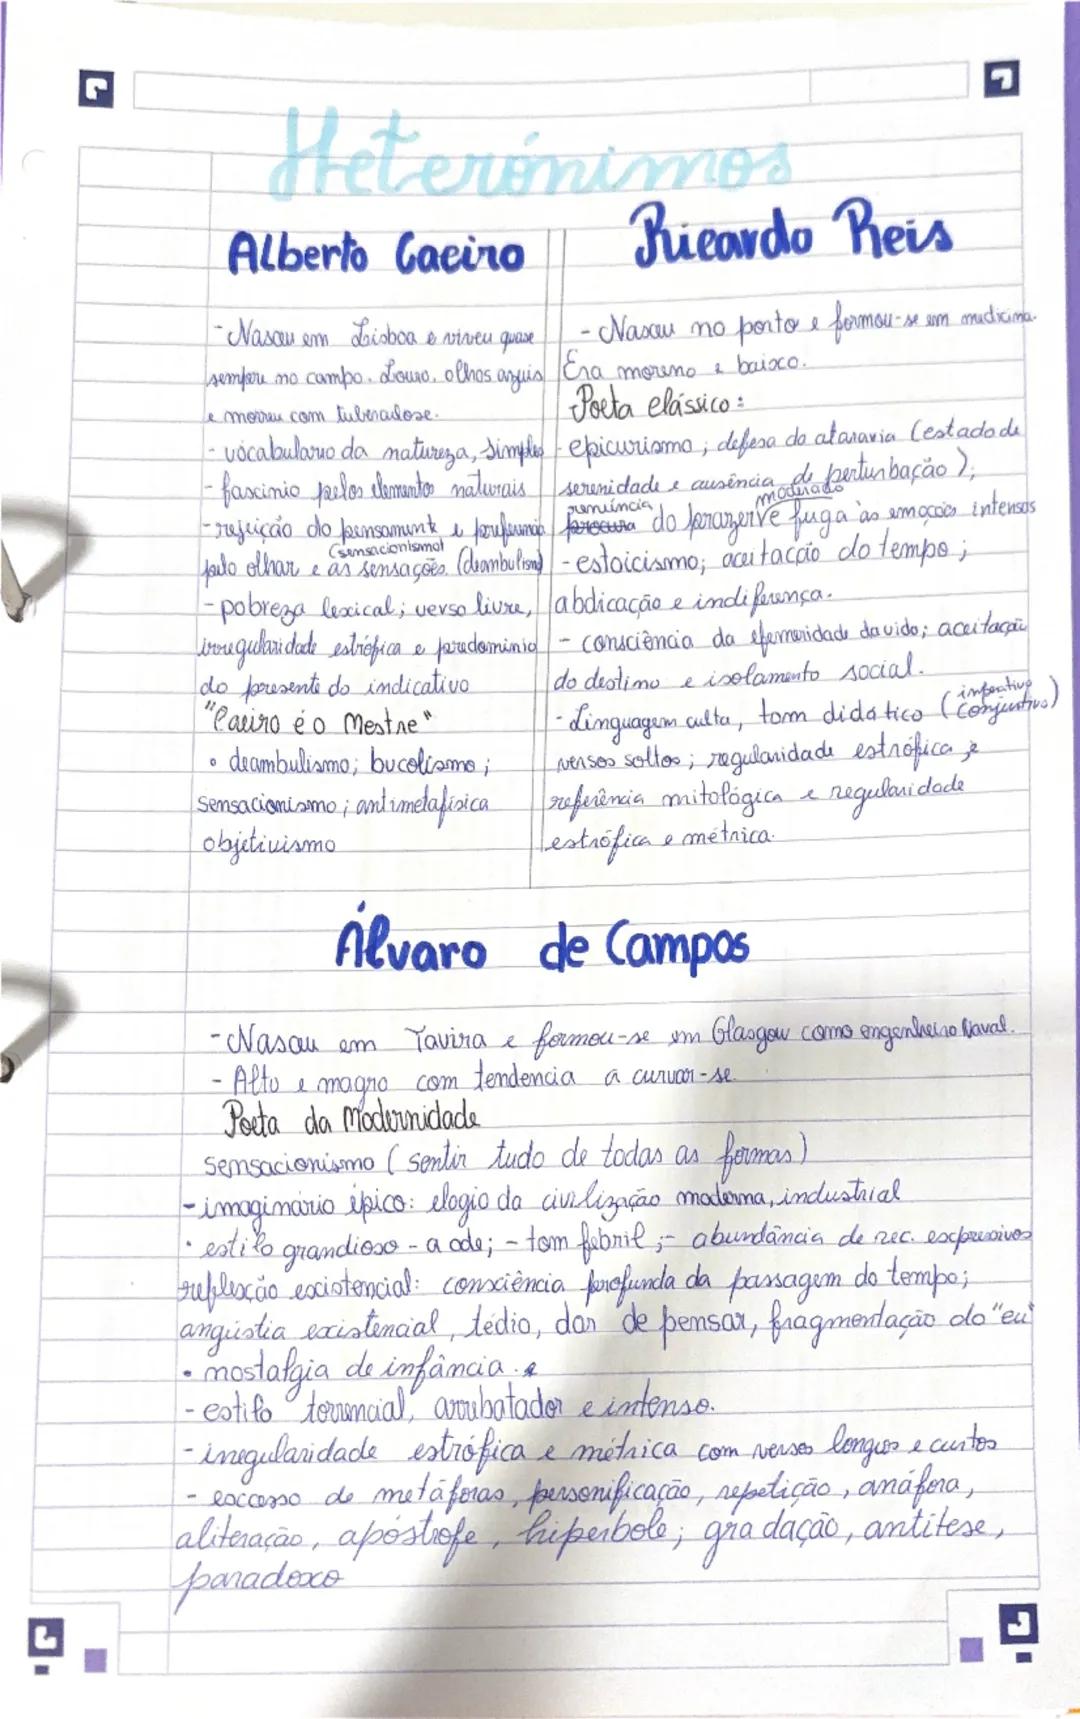 Heterónimos
Alberto Caeiro
- Nasceu em Lisboa e viveu quase
sempre no campo. Louro, olhos azuis
e morreu com tuberculose.
- vocabulario da natureza, simples
- fascinio pelos elementos naturais
- rejeição do pensamento e preferencia
(sensacionismo)
pelo olhar e as sensações. (deambulismo)
- pobreza lexical; verso livre,
irregularidade estrófica e predominio
do presente do indicativo
"Caeiro é o Mestre"
• deambulismo; bucolismo;
sensacionismo; antimetafísica
objetivismo
Ricardo Reis
- Nasceu no porto e formou-se em medicina.
Era moreno e baixo.
Poeta clássico:
- epicurismo; defesa da ataraxia (estado de
serenidade e ausência de perturbação);
renúncia moderado
procura do prazer e fuga às emoções intensas
- estoicismo; aceitação do tempo;
abdicação e indiferença.
- consciência da efemeridade da vida; aceitação
do destino e isolamento social.
- Linguagem culta, tom didático (imperativo
conjuntivo)
versos soltos; regularidade estrófica e
referência mitológica e regularidade
estrófica e métrica.
Álvaro de Campos
- Nasceu em Tavira e formou-se em Glasgow como engenheiro Naval.
- Alto e magro com tendencia a curvar-se.
Poeta da Modernidade
sensacionismo (sentir tudo de todas as formas)
- imaginário épico: elogio da civilização moderna, industrial
• estilo grandioso - a ode; - tom febril; - abundância de rec. expressivos
reflexão existencial: consciência profunda da passagem do tempo;
angústia existencial, tédio, dor de pensar, fragmentação do "eu"
• nostalgia de infância.
- estilo torrencial, arrebatador e intenso.
- irregularidade estrófica e métrica com versos longos e curtos
- excesso de metáforas, personificação, repetição, anáfora,
aliteração, apóstrofe, hipérbole; gradação, antítese,
paradoxo